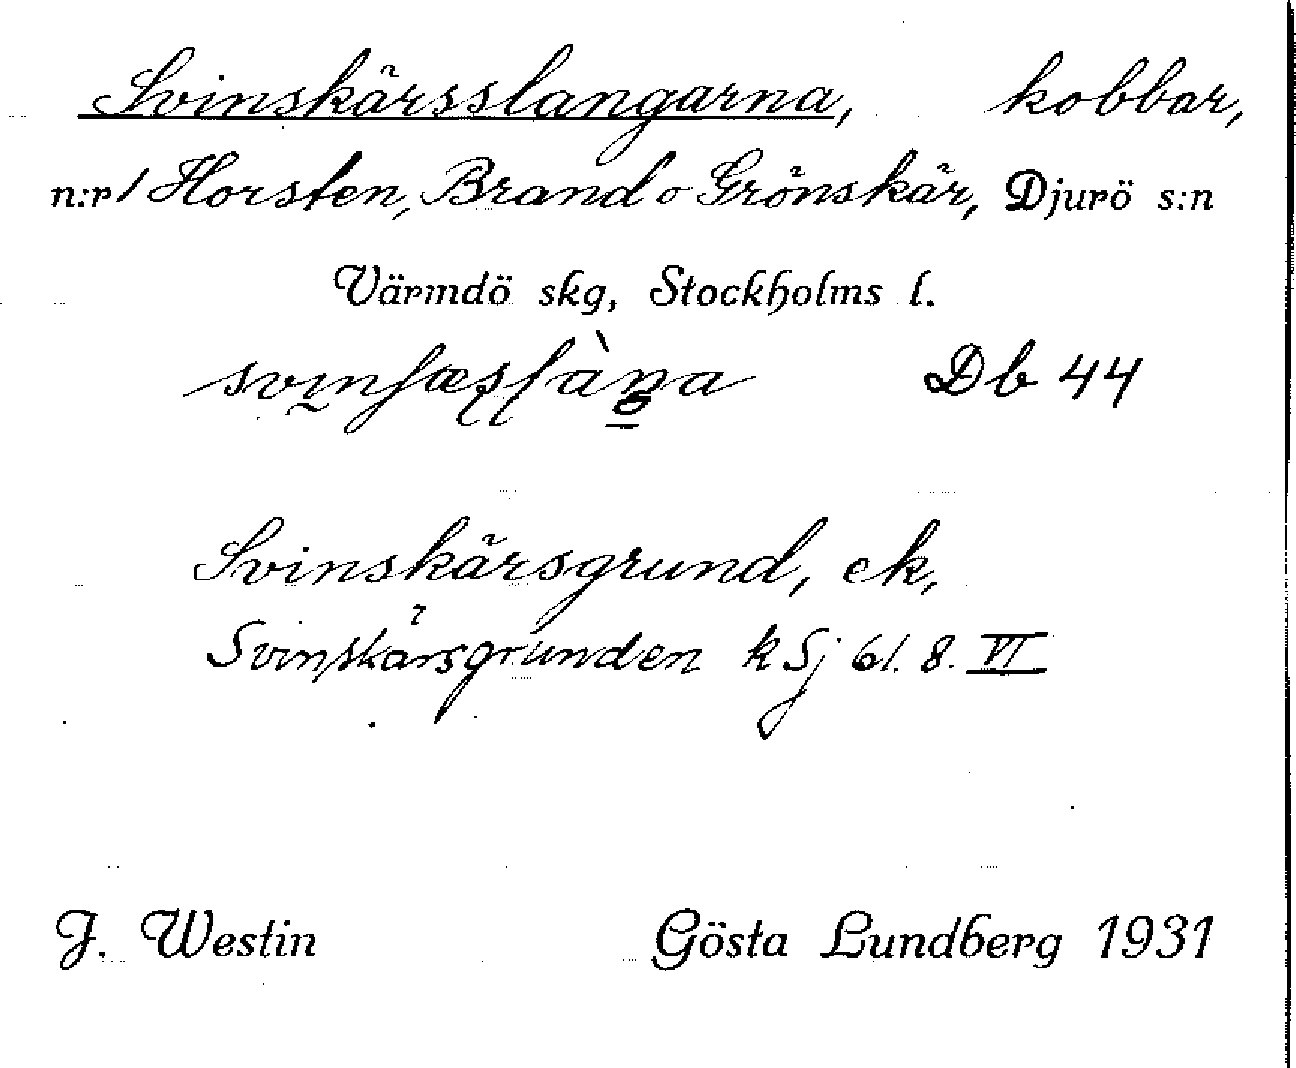 Svinskärsslangarna, kobbar,
n:r 1 Horsten, Brand o Grönskär, Djurö s:n
Värmdö skg, Stockholms l.
Db 44
Svinskärsgrund, ek,
Svinskärsgrunden k Sj 61. 8. VI
J. Westin Gösta Lundberg 1931